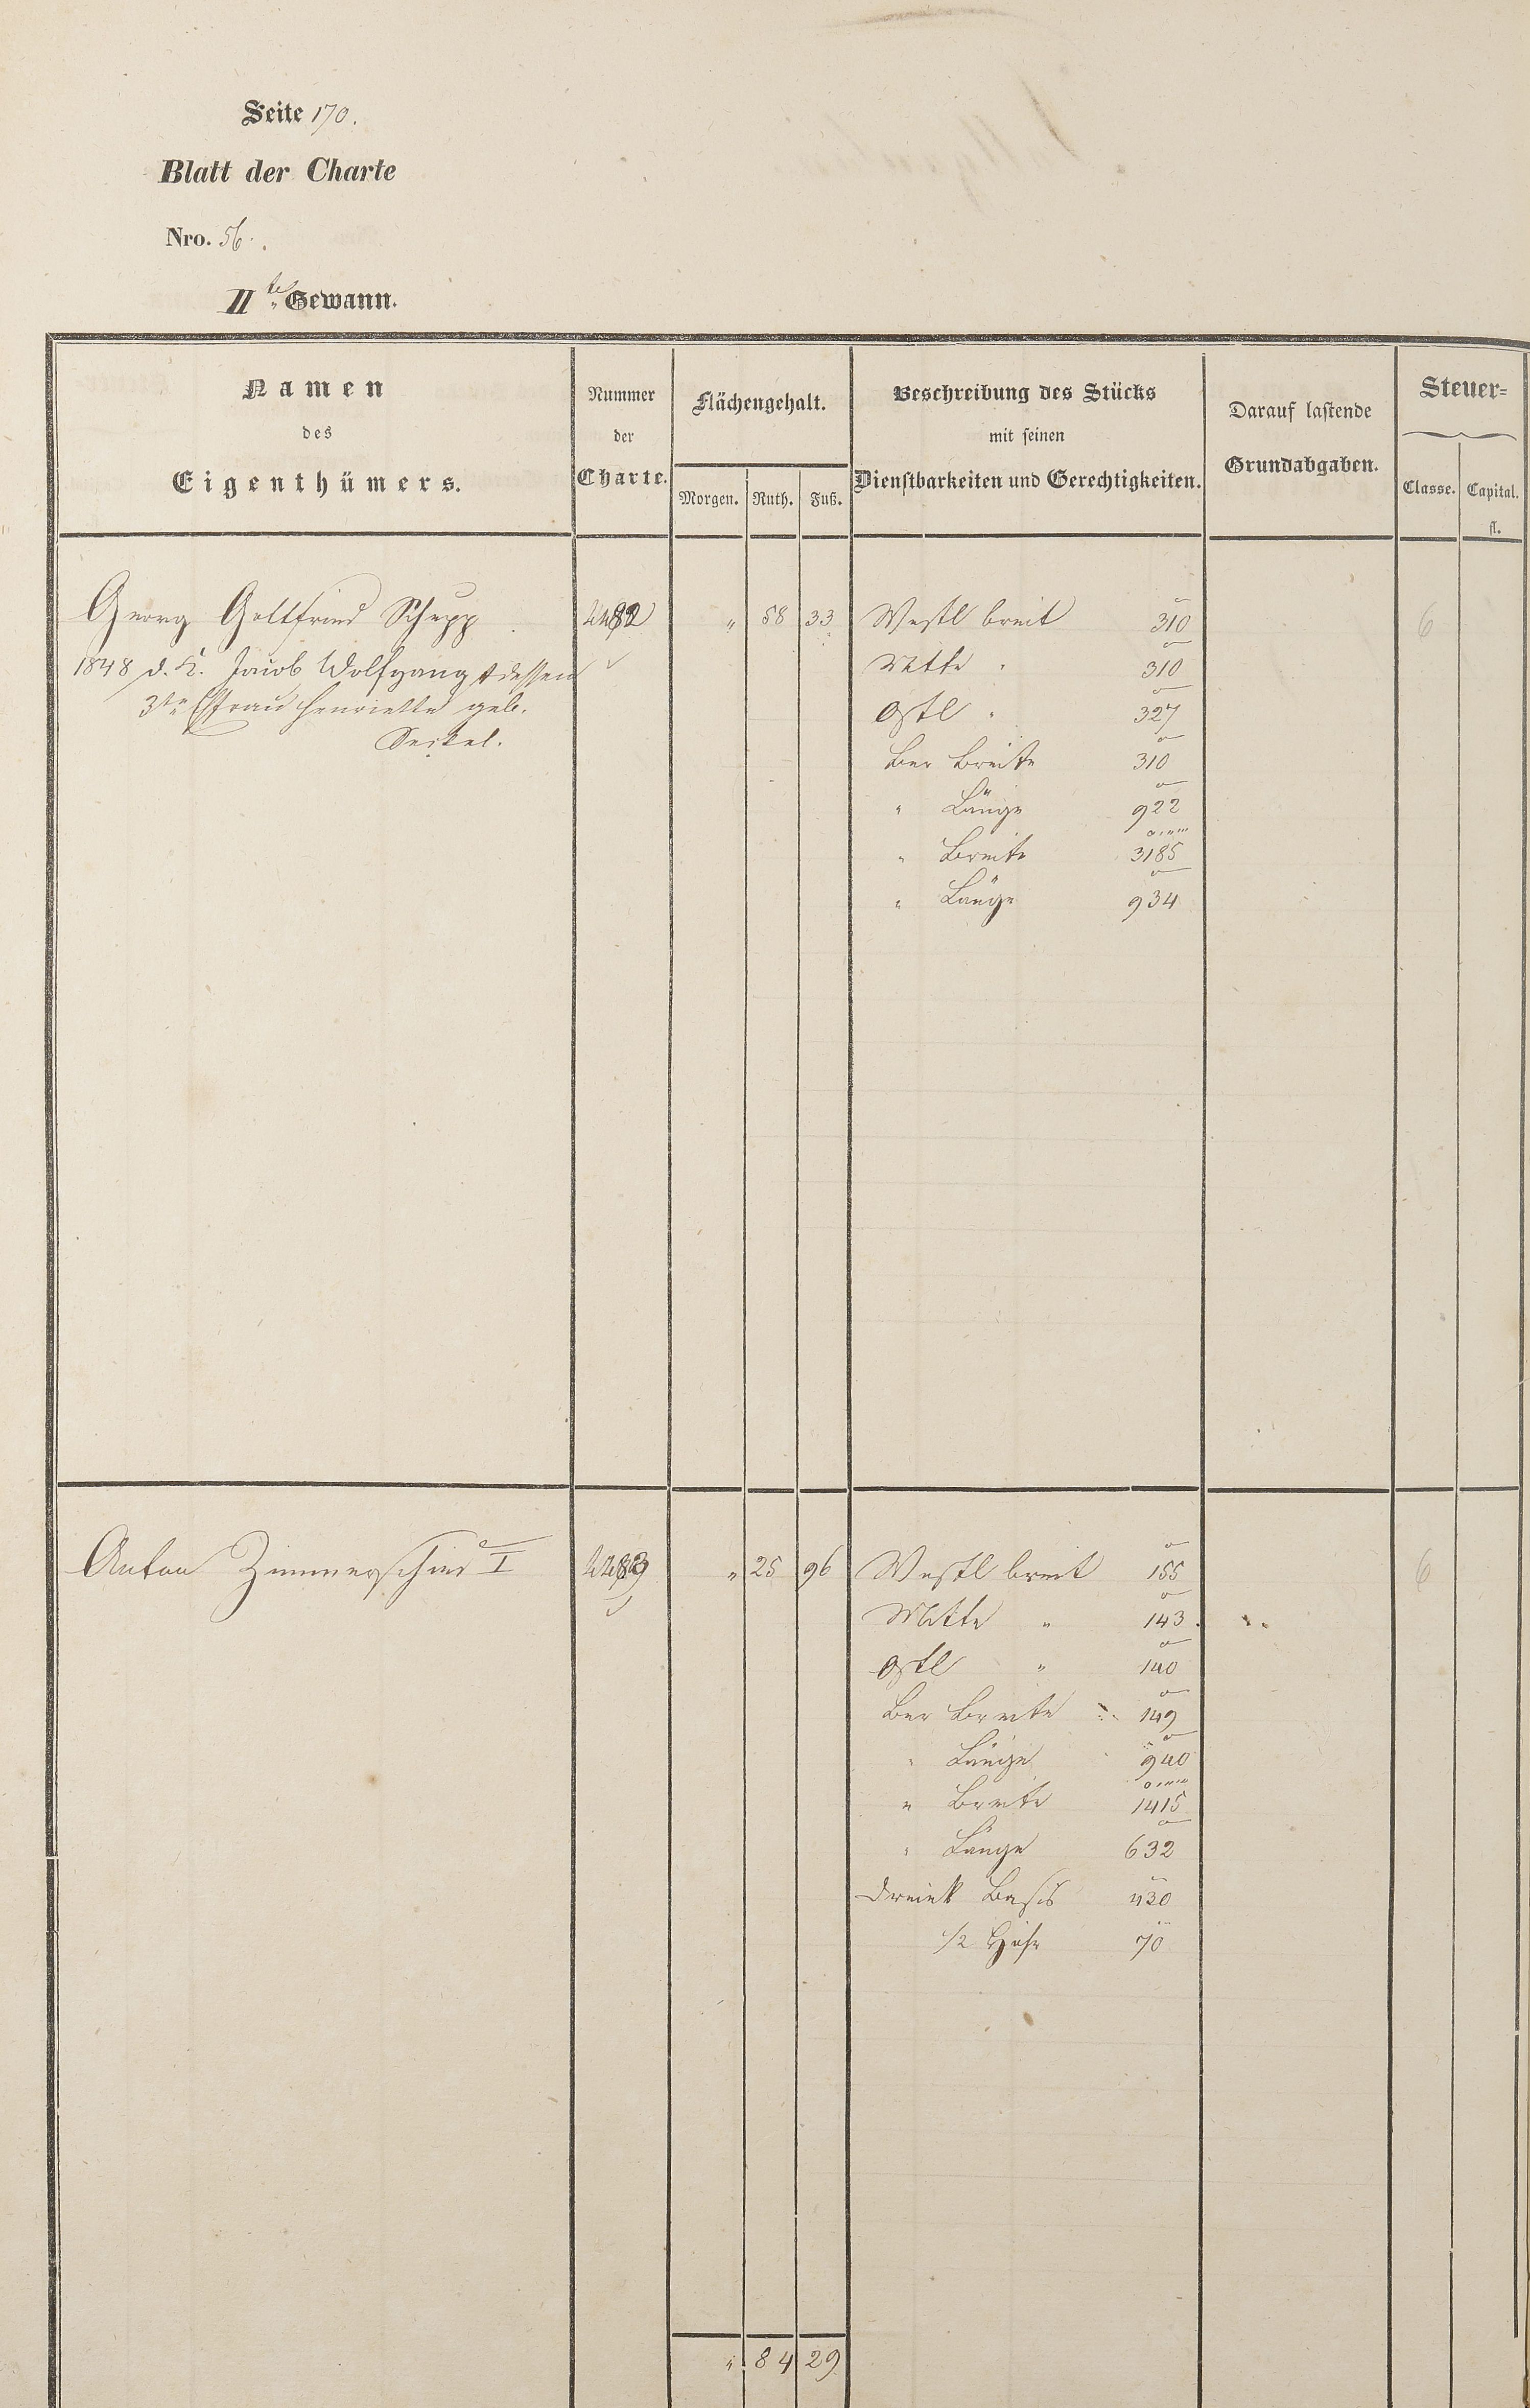 Seite 170.
Blatt der Charte
Nro. 56.
IIte Gewann.
Namen des Eigenthümers.
Nummer der Charte.
Flächengehalt.
Morgen. Ruth. Fuß.
Beschreibung des Stücks mit seinen Dienstbarkeiten und Gerechtigkeiten.
Darauf lastende Grundabgaben.
Steuer=
Classe. Capital. fl.
Georg Gottfried Schupp 4482 " 58 33 Westl breit 310 6
1848 d. K. Jacob Wolfgang & dessen Mitte " 310
3te Ehfrau Henriette geb. Ostl " 327
Seikel.
Ber Breite 310
" Länge 922
" Breite 3185
" Länge 934
Anton Zimmerschied I 4483 " 25 96 Westl breit 155 6
Mitte " 143
Ostl " 140
Ber Breite 149
" Länge 940
" Breite 1415
" Länge 632
Dreieck Basis 430
1/2 Höhe 70
" 84 29